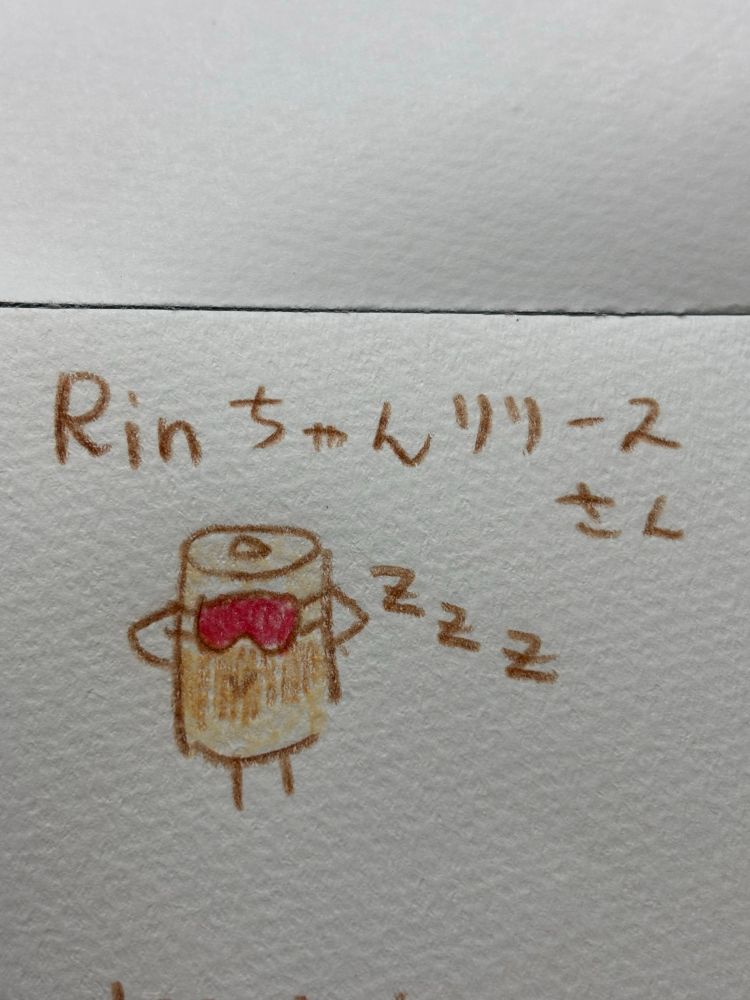 Rinちゃんリリース
さん
zzz